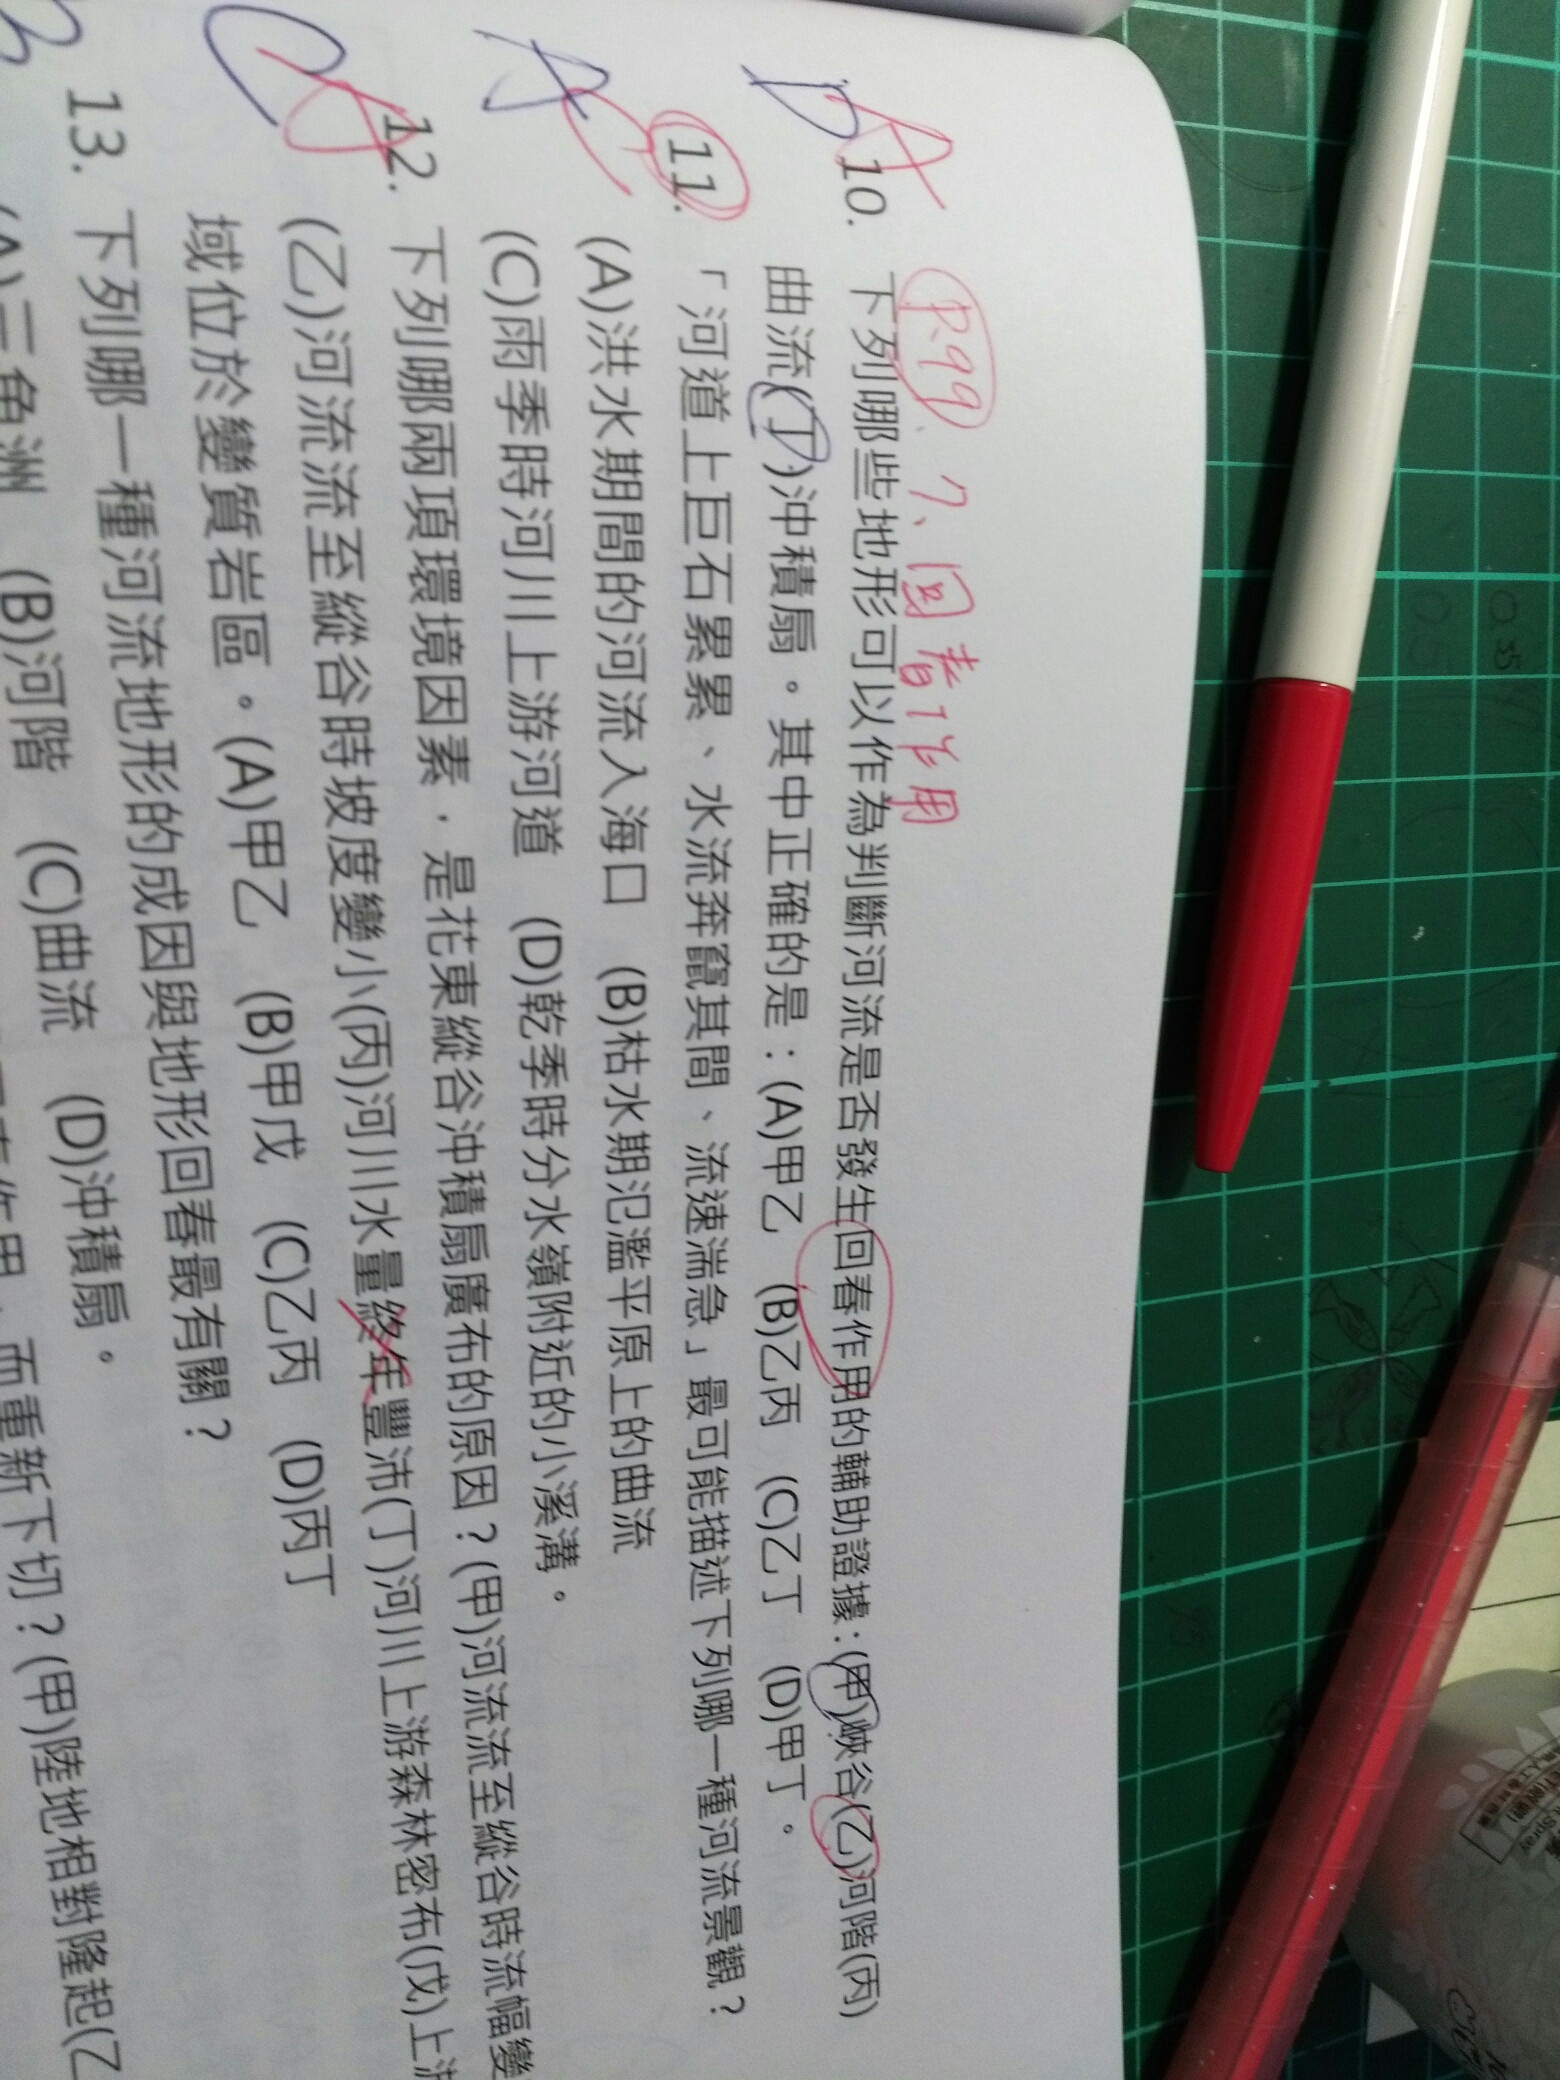 P.99、7、回春作用
A
D
10. 下列哪些地形可以作為判斷河流是否發生回春作用的輔助證據：(甲)峽谷(乙)河階(丙)
曲流(丁)沖積扇。其中正確的是：(A)甲乙 (B)乙丙 (C)乙丁 (D)甲丁。
A
C
11. 「河道上巨石累累、水流奔竄其間、流速湍急」最可能描述下列哪一種河流景觀？
(A)洪水期間的河流入海口 (B)枯水期氾濫平原上的曲流
(C)雨季時河川上游河道 (D)乾季時分水嶺附近的小溪溝。
C
A
12. 下列哪兩項環境因素，是花東縱谷沖積扇廣布的原因？(甲)河流流至縱谷時流幅變
(乙)河流流至縱谷時坡度變小(丙)河川水量終年豐沛(丁)河川上游森林密布(戊)上游
域位於變質岩區。(A)甲乙 (B)甲戊 (C)乙丙 (D)丙丁
13. 下列哪一種河流地形的成因與地形回春最有關？
(A)三角洲 (B)河階 (C)曲流 (D)沖積扇。
而重新下切？(甲)陸地相對隆起(乙
0.35
05
Spray